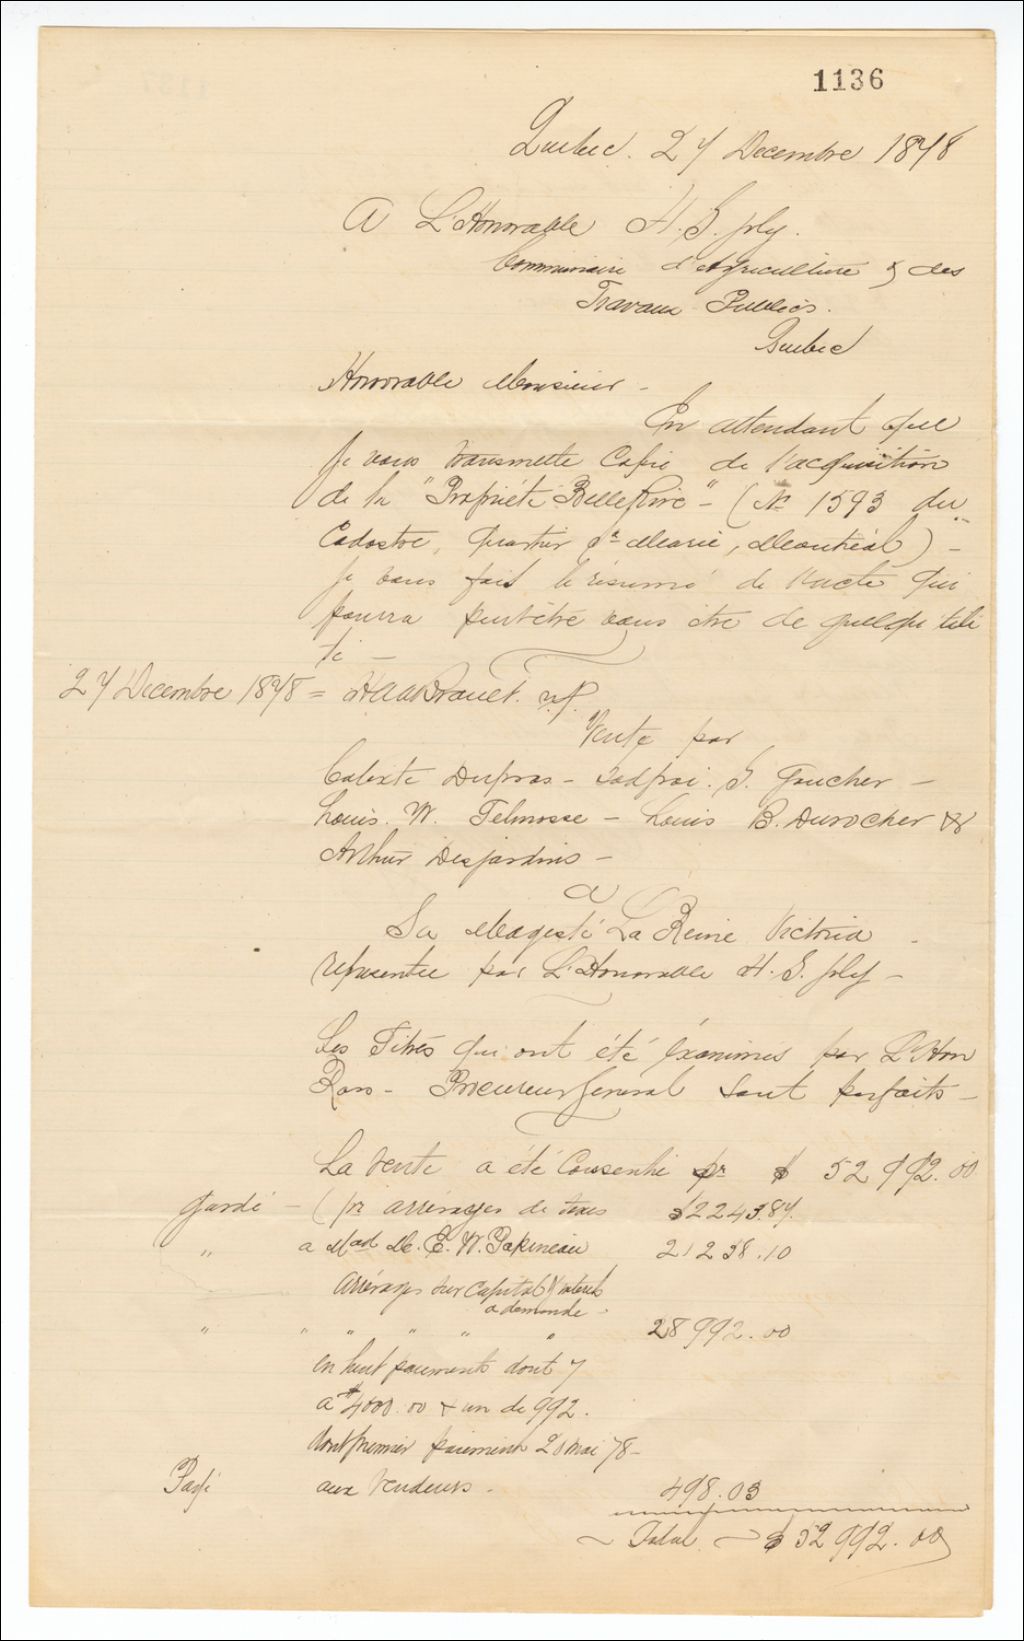 1136
Quebec. 27 Decembre 1878
A L'Honorable H. G. Joly.
Commissaire d'Agriculture & des
Travaux Publics.
Quebec
Honorable Monsieur -
En attendant que
Je vous transmette Copie de l'acquisition
de la "Propriété Bellerive" - (No 1593 du
Cadastre, Quartier Ste Marie, Montréal) -
Je vous fait le résumé de l'acte qui
pourra peutêtre vous être de quelqu'utili
té -
27 Decembre 1878 = H A A Brault. n.p.
Vente par
Calixte Dupras - Godfroi. G. Gaucher -
Louis. W. Telmosse - Louis B. Durocher &
Arthur Desjardins -
a
Sa Magesté La Reine Victoria
représentée par L'Honorable H. G. Joly -
Les Titres qui ont été éxaminés par L'Hon
Ross - Procureur General sont parfaits -
La vente a été Consentie pr $ 52992.00
Gardé - (pr arrérages de taxes $2243.87.
" a Mad M. E. W. Papineau 21238.10
arrérages sur Capital & interets
a demande -
" " " " " " 28992.00
en huit paiements dont 7
a $4000.00 & un de 992.
dont premier paiement 20 mai 78 -
Payé aux Vendeurs - 498.03
Total $ 52992.00